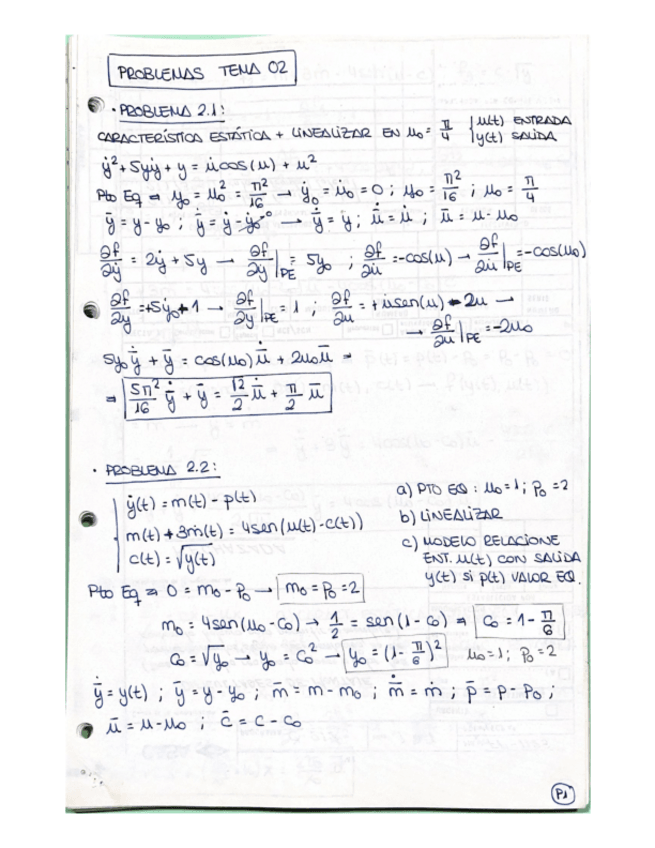 PROBLEMAS TEMA 02
· PROBLEMA 2.1:
CARACTERÍSTICA ESTÁTICA + LINEALIZAR EN u₀ = π/4 { u(t) ENTRADA
y(t) SALIDA
ẏ² + 5yẏ + y = u̇cos(u) + u²
Pto Eq ⇒ y₀ = u₀² = π²/16 → ẏ₀ = u̇₀ = 0 ; y₀ = π²/16 ; u₀ = π/4
ȳ = y - y₀ ; ẏ̄ = ẏ - ẏ₀⁰ → ẏ̄ = ẏ ; u̇̄ = u̇ ; ū = u - u₀
∂f/∂ẏ = 2ẏ + 5y → ∂f/∂y|PE = 5y₀ ; ∂f/∂u̇ = -cos(u) → ∂f/∂u̇|PE = -cos(u₀)
∂f/∂y = +5ẏ₀ + 1 → ∂f/∂y|PE = 1 ; ∂f/∂u = +u̇sen(u) - 2u →
→ ∂f/∂u|PE = -2u₀
5y₀ẏ̄ + ȳ = cos(u₀)u̇̄ + 2u₀ū ⇒
⇒ 5π²/16 ẏ̄ + ȳ = √2/2 u̇̄ + π/2 ū
· PROBLEMA 2.2:
ẏ(t) = m(t) - p(t)
m(t) + 3ṁ(t) = 4sen(u(t) - c(t))
c(t) = √y(t)
a) PTO EQ : u₀ = 1 ; P₀ = 2
b) LINEALIZAR
c) MODELO RELACIONE
ENT. u(t) CON SALIDA
y(t) si p(t) VALOR EQ.
Pto Eq ⇒ 0 = m₀ - P₀ → m₀ = P₀ = 2
m₀ = 4sen(u₀ - c₀) → 1/2 = sen(1 - c₀) ⇒ c₀ = 1 - π/6
c₀ = √y₀ → y₀ = c₀² → y₀ = (1 - π/6)² u₀ = 1 ; P₀ = 2
ẏ̄ = ẏ(t) ; ȳ = y - y₀ ; m̄ = m - m₀ ; ṁ̄ = ṁ ; p̄ = p - P₀ ;
ū = u - u₀ ; c̄ = c - c₀
P1